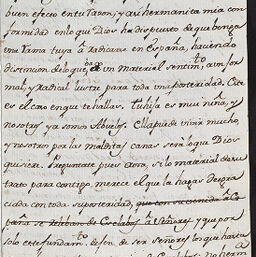 buen efecto en tu Varon, y asi hermanita mia con
formidad en lo que Dios ha dispuesto de que benga
una rama tuya â radicarse en España, haciendo
distincion de lo que es un material sentim.to
mal, y radical lustre para toda una posteridad. Este
es el caso en que te hallas. Tu hija es mui niña, y
nosotros ya somos Abuelos. Ella puede vivir mucho,
y nosotros por las malditas canas sera lo que Dios
quisiere. reputate pues ahora, si lo material de su
trato para contigo, merece el que la hagas desgra
ciada con toda su posteridad,
ña se de Esclabos â Señores y que por
solo este fundam.to dejen de ser señores los que hasta